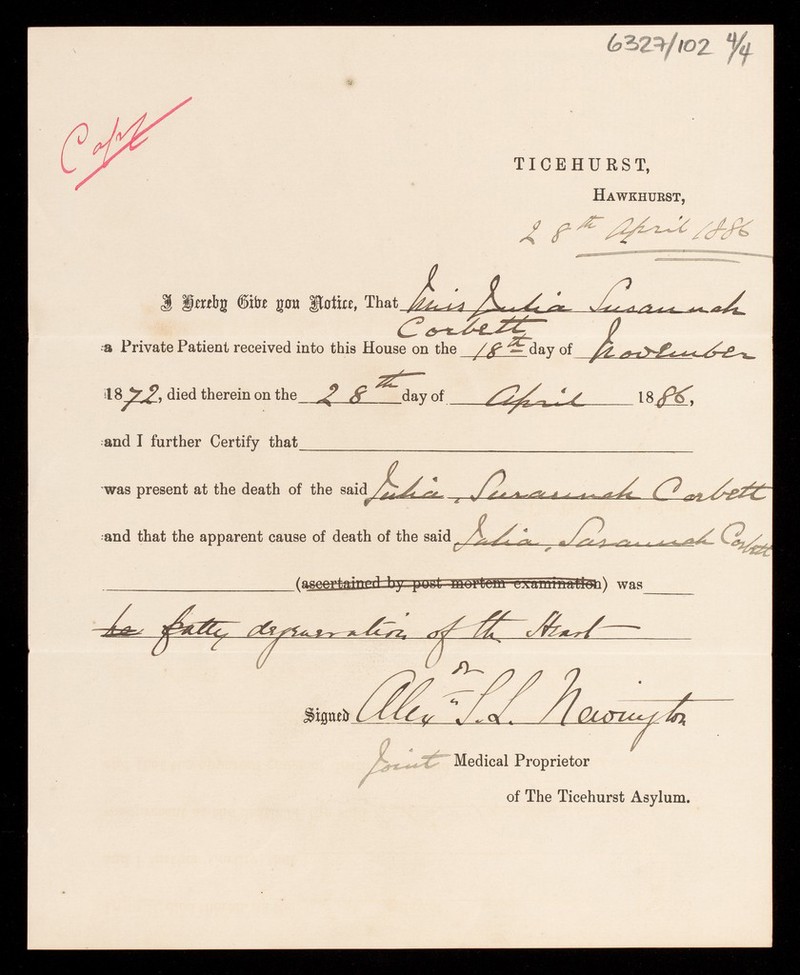 6327/102 4/4
Copy
TICEHURST,
HAWKHURST,
28th April 1886
I Hereby Give you Notice, That Miss Julia Susannah
Corbett
a Private Patient received into this House on the 18th day of November
1872, died therein on the 28th day of April 1886,
and I further Certify that
was present at the death of the said Julia Susannah Corbett
and that the apparent cause of death of the said Julia Susannah Corbett
(ascertained by post mortem examination) was
fatty degeneration of the Heart
Signed Alexr S. L. Newington
Joint Medical Proprietor
of The Ticehurst Asylum.